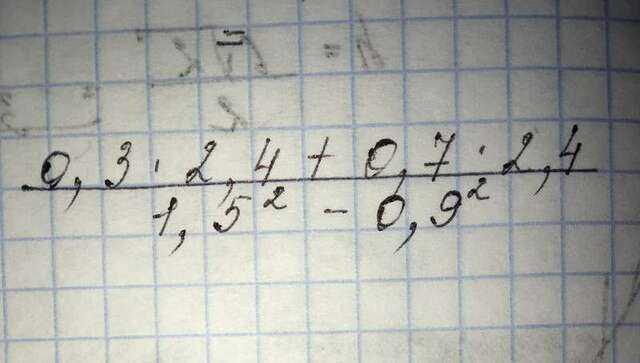 0,3·2,4+0,7·2,4
1,5²-0,9²